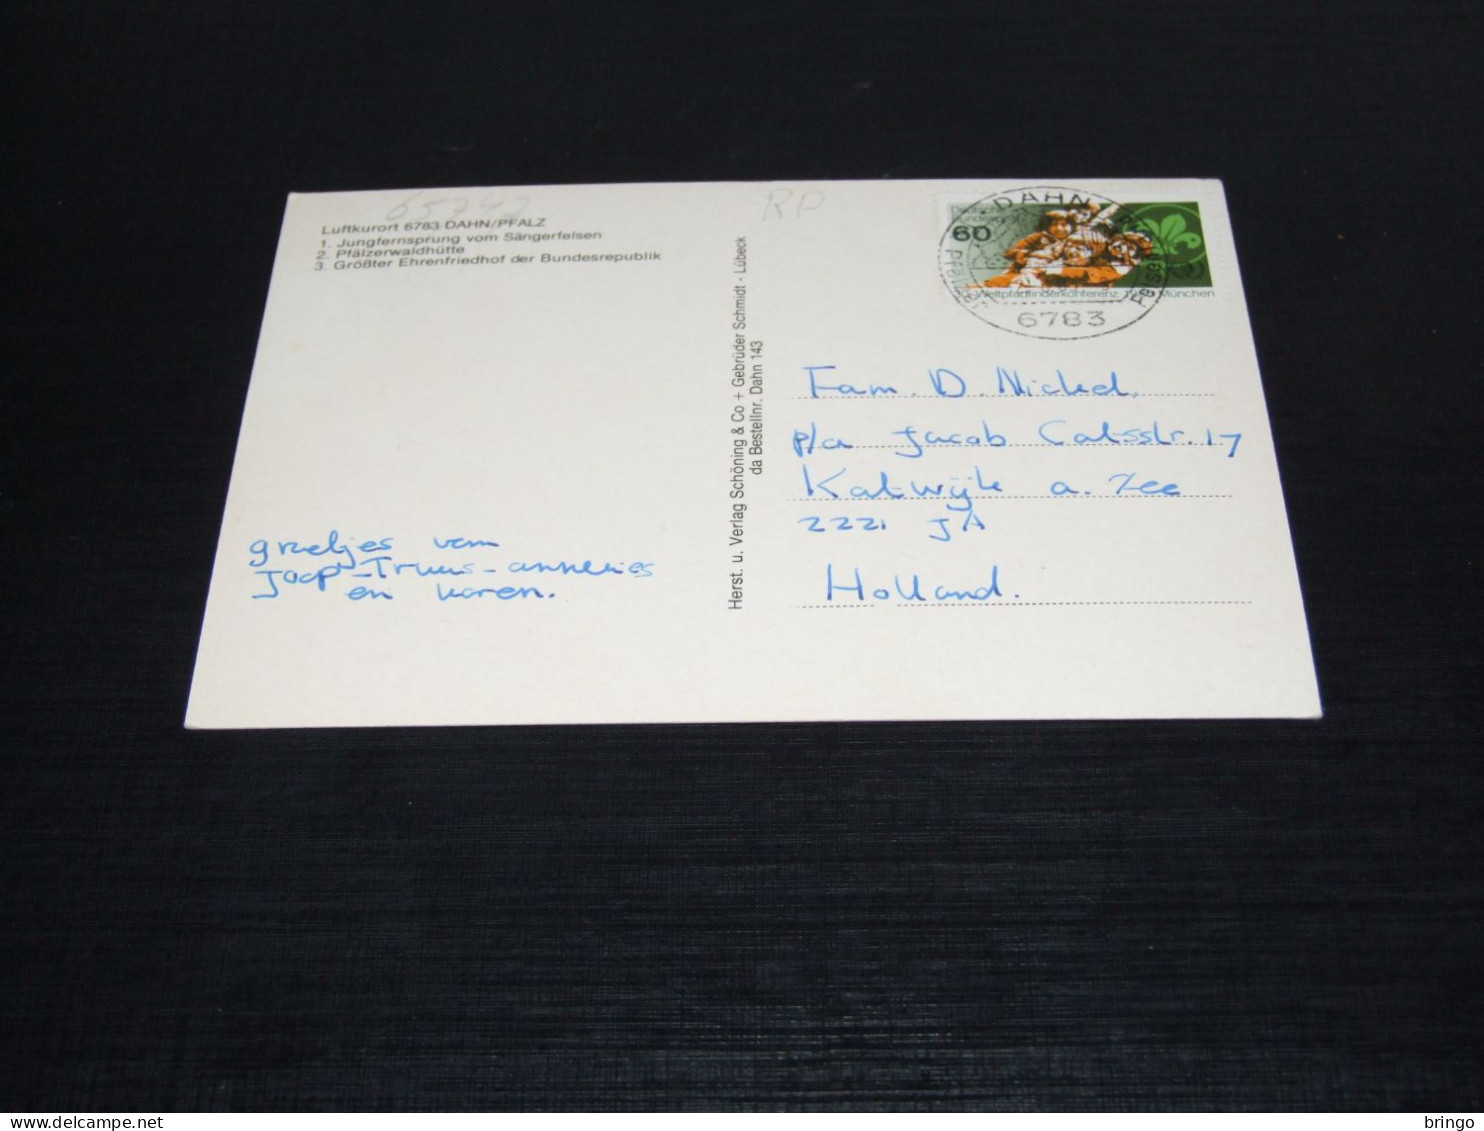 65742
RP
Luftkurort 6783 DAHN/PFALZ
1. Jungfernsprung vom Sängerfelsen
2. Pfälzerwaldhütte
3. Größter Ehrenfriedhof der Bundesrepublik
groetjes van
Joop-Truus-annelies
en karen.
Herst. u. Verlag Schöning & Co + Gebrüder Schmidt - Lübeck
da Bestellnr. Dahn 143
60
Weltpfadfinderkonferenz München
DAHN
6783
Fam. D. Nickel.
p/a Jacob Catsstr. 17
Katwijk a. Zee
2221 JA
Holland.
delcampe.net
bringo